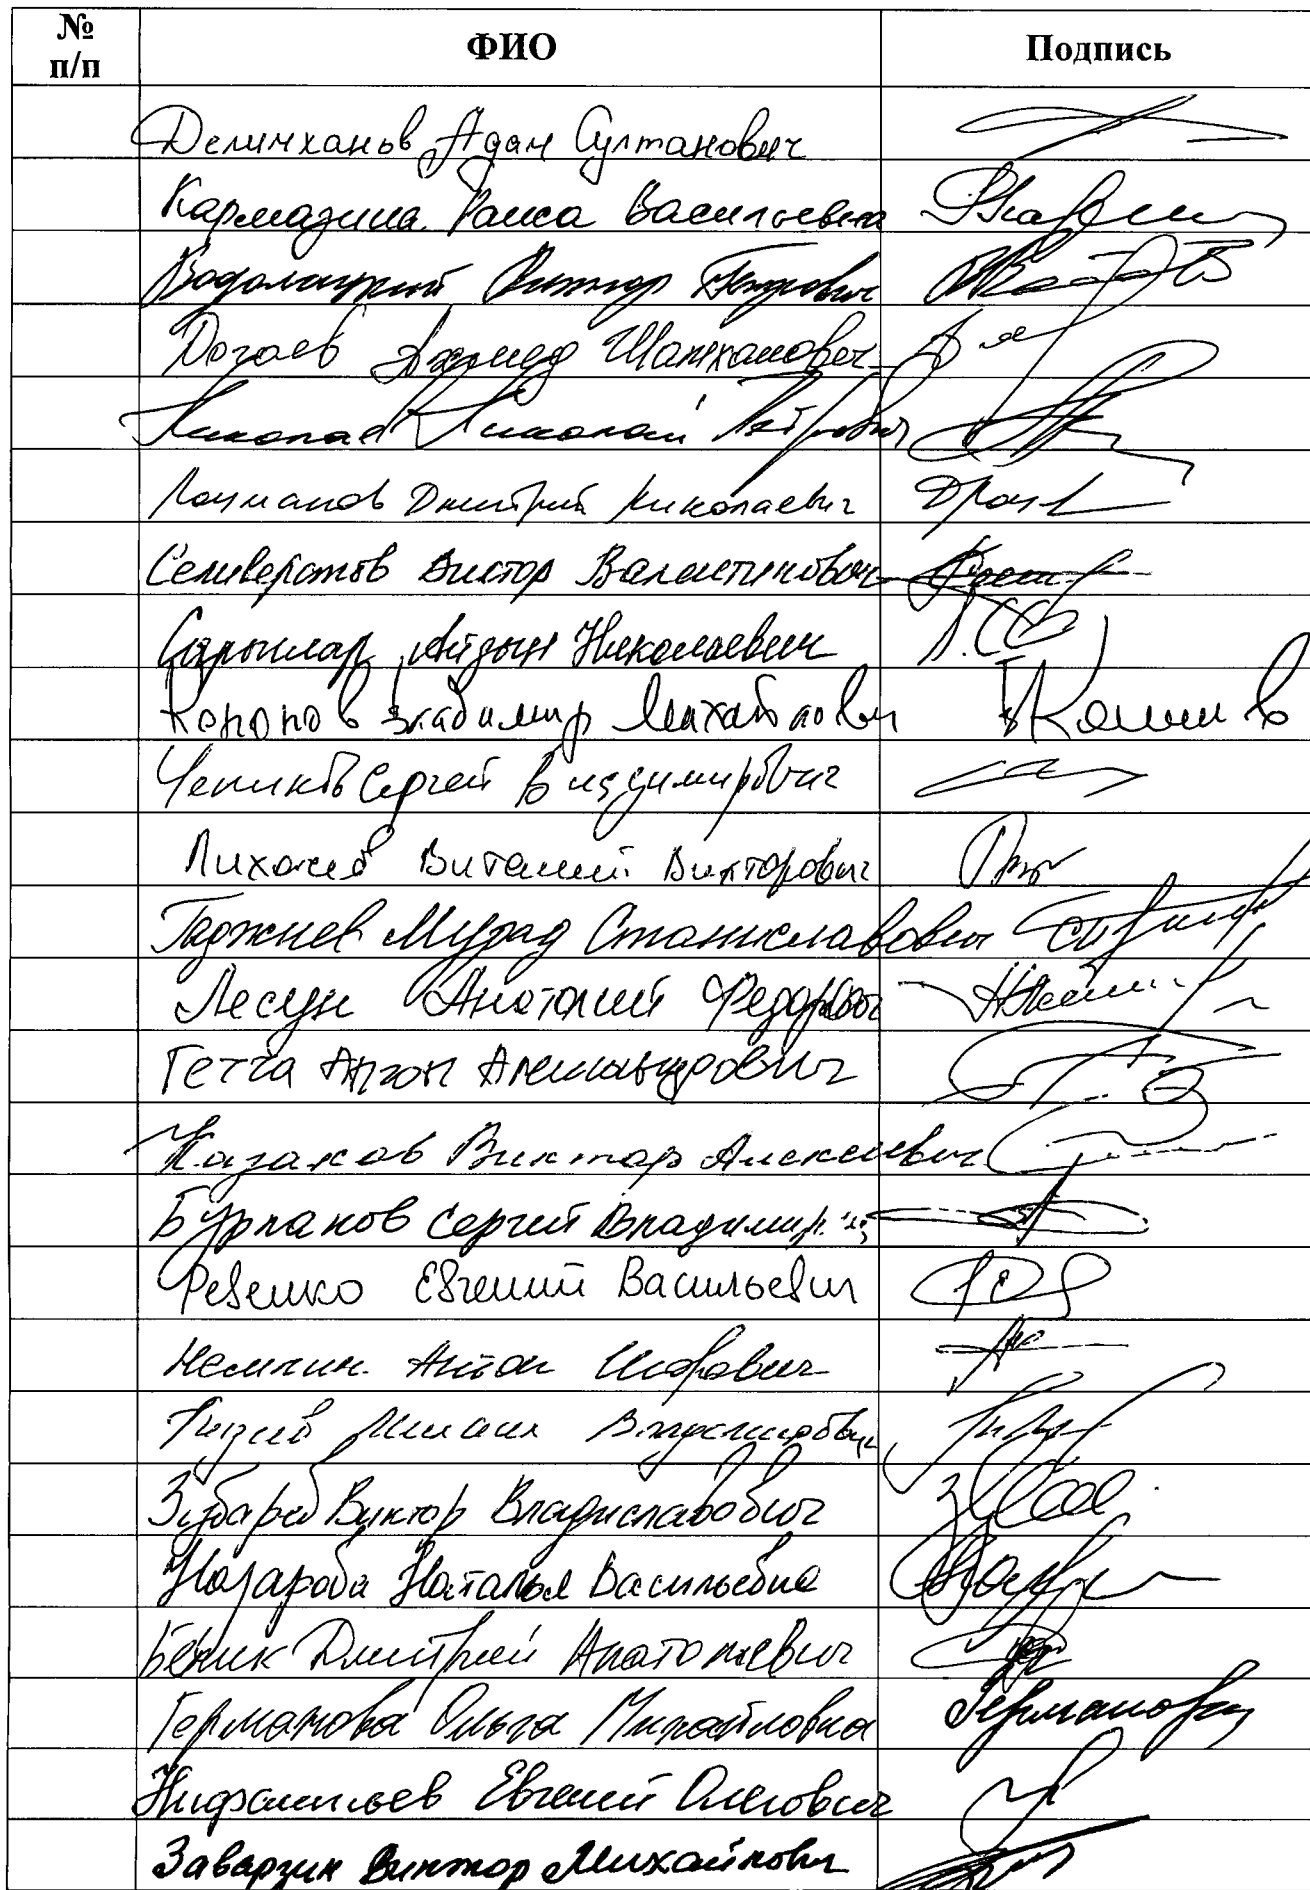 № п/п ФИО Подпись
Делимханов Адам Султанович
Кармазина Раиса Васильевна
Водолацкий Виктор Петрович
Догаев Ахмед Шамханович
Николаев Николай Петрович
Лоцманов Дмитрий Николаевич
Селиверстов Виктор Валентинович
Сарыглар Айдын Николаевич
Кононов Владимир Михайлович
Чепиков Сергей Владимирович
Лихачев Виталий Викторович
Гаджиев Мурад Станиславович
Лесун Анатолий Федорович
Гетта Антон Александрович
Казаков Виктор Алексеевич
Бурлаков Сергей Владимир.
Ревенко Евгений Васильевич
Немкин Антон Игоревич
Гулевский Владимирович
Зубарев Виктор Владиславович
Назарова Наталья Васильевна
Бегник Дмитрий Анатольевич
Германова Ольга Михайловна Германова
Нифантьев Евгений Олегович
Заварзин Виктор Михайлович